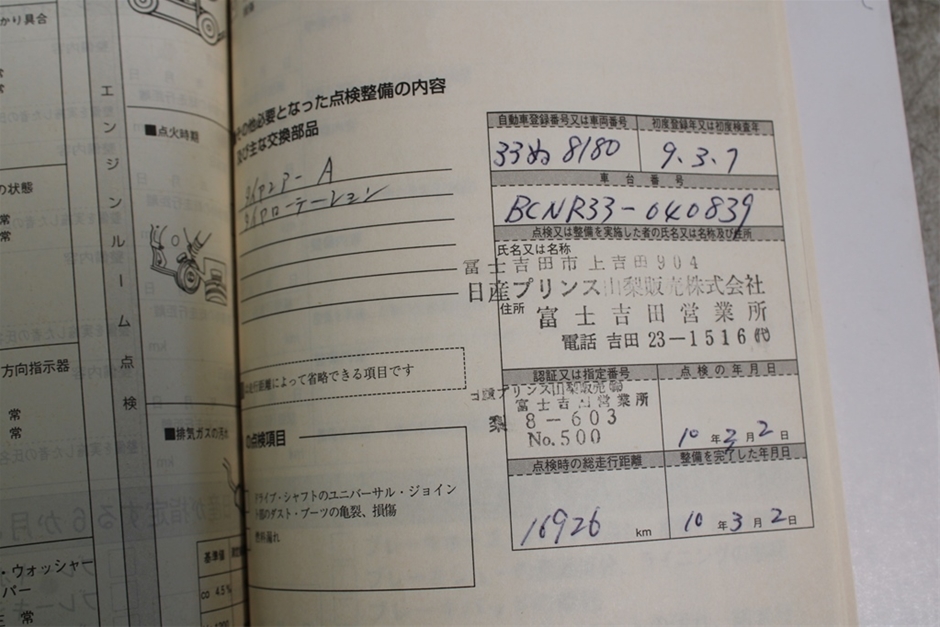 かり具合
常
常
の状態
常
常
方向指示器
常
常
・ウォッシャー
パー
常
エンジンルーム点検
■点火時期
■排気ガスの汚れ
基準値
co 4.5%
その他必要となった点検整備の内容
及び主な交換部品
タイヤエアー A
タイヤローテーション
走行距離によって省略できる項目です
の点検項目
ドライブ・シャフトのユニバーサル・ジョイン
ト部のダスト・ブーツの亀裂、損傷
燃料漏れ
自動車登録番号又は車両番号
初度登録年又は初度検査年
33ぬ 8180
9.3.7
車台番号
BCNR33-040839
点検又は整備を実施した者の氏名又は名称及び住所
氏名又は名称
富士吉田市上吉田904
日産プリンス山梨販売株式会社
住所
富士吉田営業所
電話 吉田 23-1516代
認証又は指定番号
点検の年月日
日産プリンス山梨販売㈱
富士吉田営業所
梨 8-603
No.500
10年3月2日
点検時の総走行距離
整備を完了した年月日
16926 km
10年3月2日